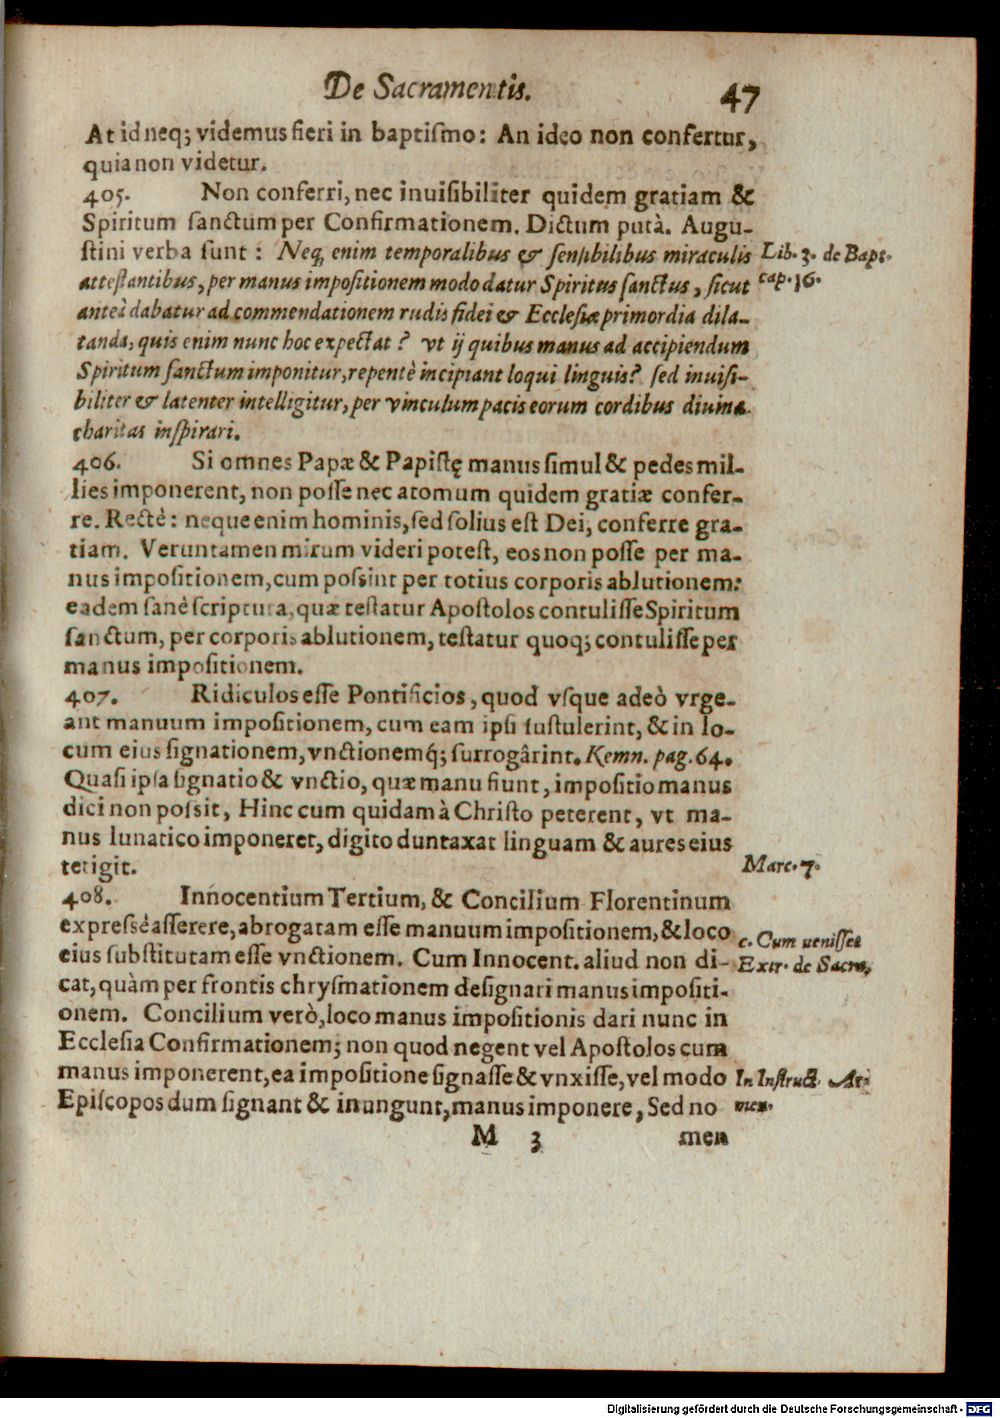 De Sacramentis. 47
At id neq; videmus fieri in baptiſmo: An ideo non confertur,
quia non videtur.
405. Non conferri, nec inuiſibiliter quidem gratiam &
Spiritum ſanctum per Confirmationem. Dictum putà. Augu-
ſtini verba ſunt: Neq, enim temporalibus & ſenſibilibus miraculis
Lib. 3. de Bapt.
atteſtantibus, per manus impoſitionem modo datur Spiritus ſanctus, ſicut
cap. 16.
anteà dabatur ad commendationem rudis fidei & Eccleſiæ primordia dila-
tanda, quis enim nunc hoc expectat? vt ij quibus manus ad accipiendum
Spiritum ſanctum imponitur, repentè incipiant loqui linguis? ſed inuiſi-
biliter & latenter intelligitur, per vinculum pacis eorum cordibus diuina
charitas inſpirari.
406. Si omnes Papæ & Papiſtę manus ſimul & pedes mil-
lies imponerent, non poſſe nec atomum quidem gratiæ confer-
re. Rectè: neque enim hominis, ſed ſolius eſt Dei, conferre gra-
tiam. Veruntamen mirum videri poteſt, eos non poſſe per ma-
nus impoſitionem, cum poſsint per totius corporis ablutionem:
eadem ſanè ſcriptura, quæ teſtatur Apoſtolos contuliſſe Spiritum
ſanctum, per corporis ablutionem, teſtatur quoq; contuliſſe per
manus impoſitionem.
407. Ridiculos eſſe Pontificios, quod vſque adeò vrge-
ant manuum impoſitionem, cum eam ipſi ſuſtulerint, & in lo-
cum eius ſignationem, vnctionemq́; ſurrogârint. Kemn. pag. 64.
Quaſi ipſa ſignatio & vnctio, quæ manu fiunt, impoſitio manus
dici non poſsit, Hinc cum quidam à Chriſto peterent, vt ma-
nus lunatico imponeret, digito duntaxat linguam & aures eius
tetigit.
Marc. 7.
408. Innocentium Tertium, & Concilium Florentinum
expreſsè aſſerere, abrogatam eſſe manuum impoſitionem, & loco
c. Cum veniſſet
eius ſubſtitutam eſſe vnctionem. Cum Innocent. aliud non di-
Extr. de Sacra,
cat, quàm per frontis chryſmationem deſignari manus impoſiti-
onem. Concilium verò, loco manus impoſitionis dari nunc in
Eccleſia Confirmationem; non quod negent vel Apoſtolos cum
manus imponerent, ea impoſitione ſignaſſe & vnxiſſe, vel modo
In Inſtruct. Ar-
Epiſcopos dum ſignant & inungunt, manus imponere, Sed no
men.
M 3 men
Digitalisierung gefördert durch die Deutsche Forschungsgemeinschaft - DFG